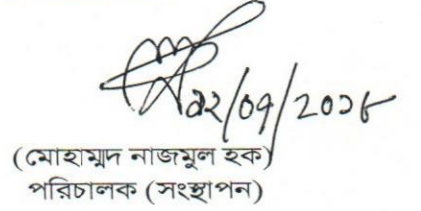 ১২/০৭/২০১৮
(মোহাম্মদ নাজমুল হক)
পরিচালক (সংস্থাপন)